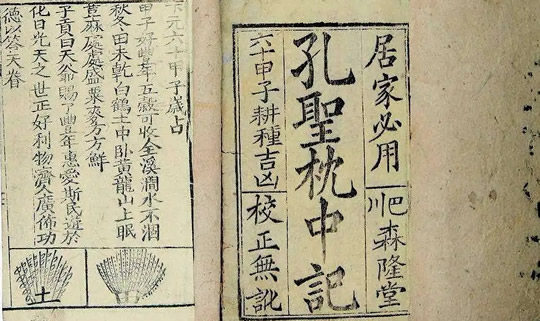 居家必用
巴川森隆堂
孔聖枕中記
六十甲子耕種吉凶
校正無訛
元六十甲子歲占
甲子好豐年五穀可收全溪澗水不涸
秋冬田未乾白鶴土中臥黃龍山上眠
麻處處盛粟麥方方鮮
子貢曰天爺賜了豐年惠愛斯民遊於
化日光天之世正好利物濟人廣佈功
德以答天眷
土